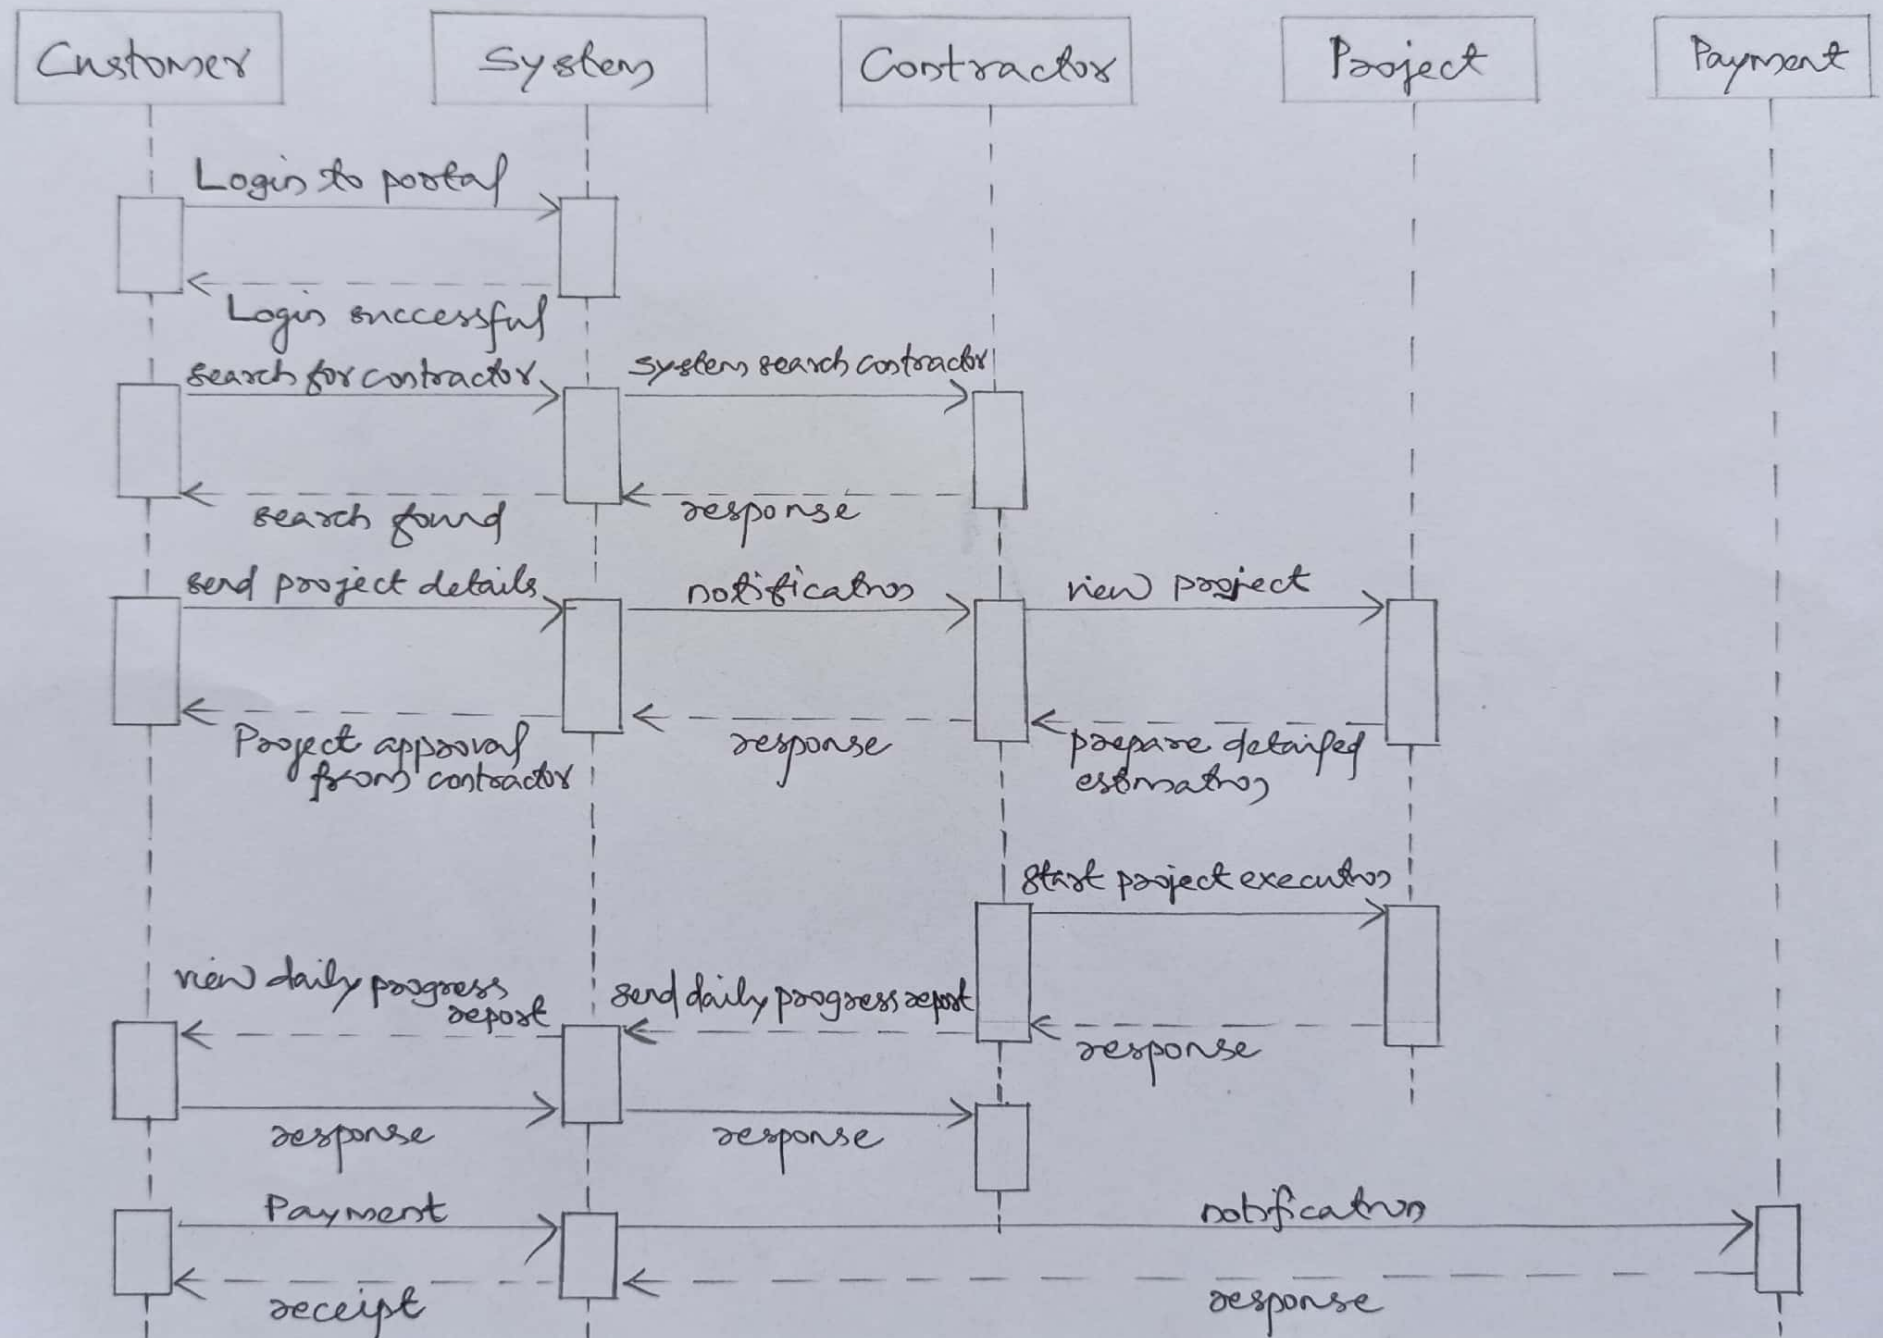 Customer
System
Contractor
Project
Payment
Login to portal
Login successful
search for contractor
system search contractor
search found
response
send project details
notification
view project
Project approval
from contractor
response
prepare detailed
estimation
start project execution
view daily progress
report
send daily progress report
response
response
response
Payment
notification
receipt
response